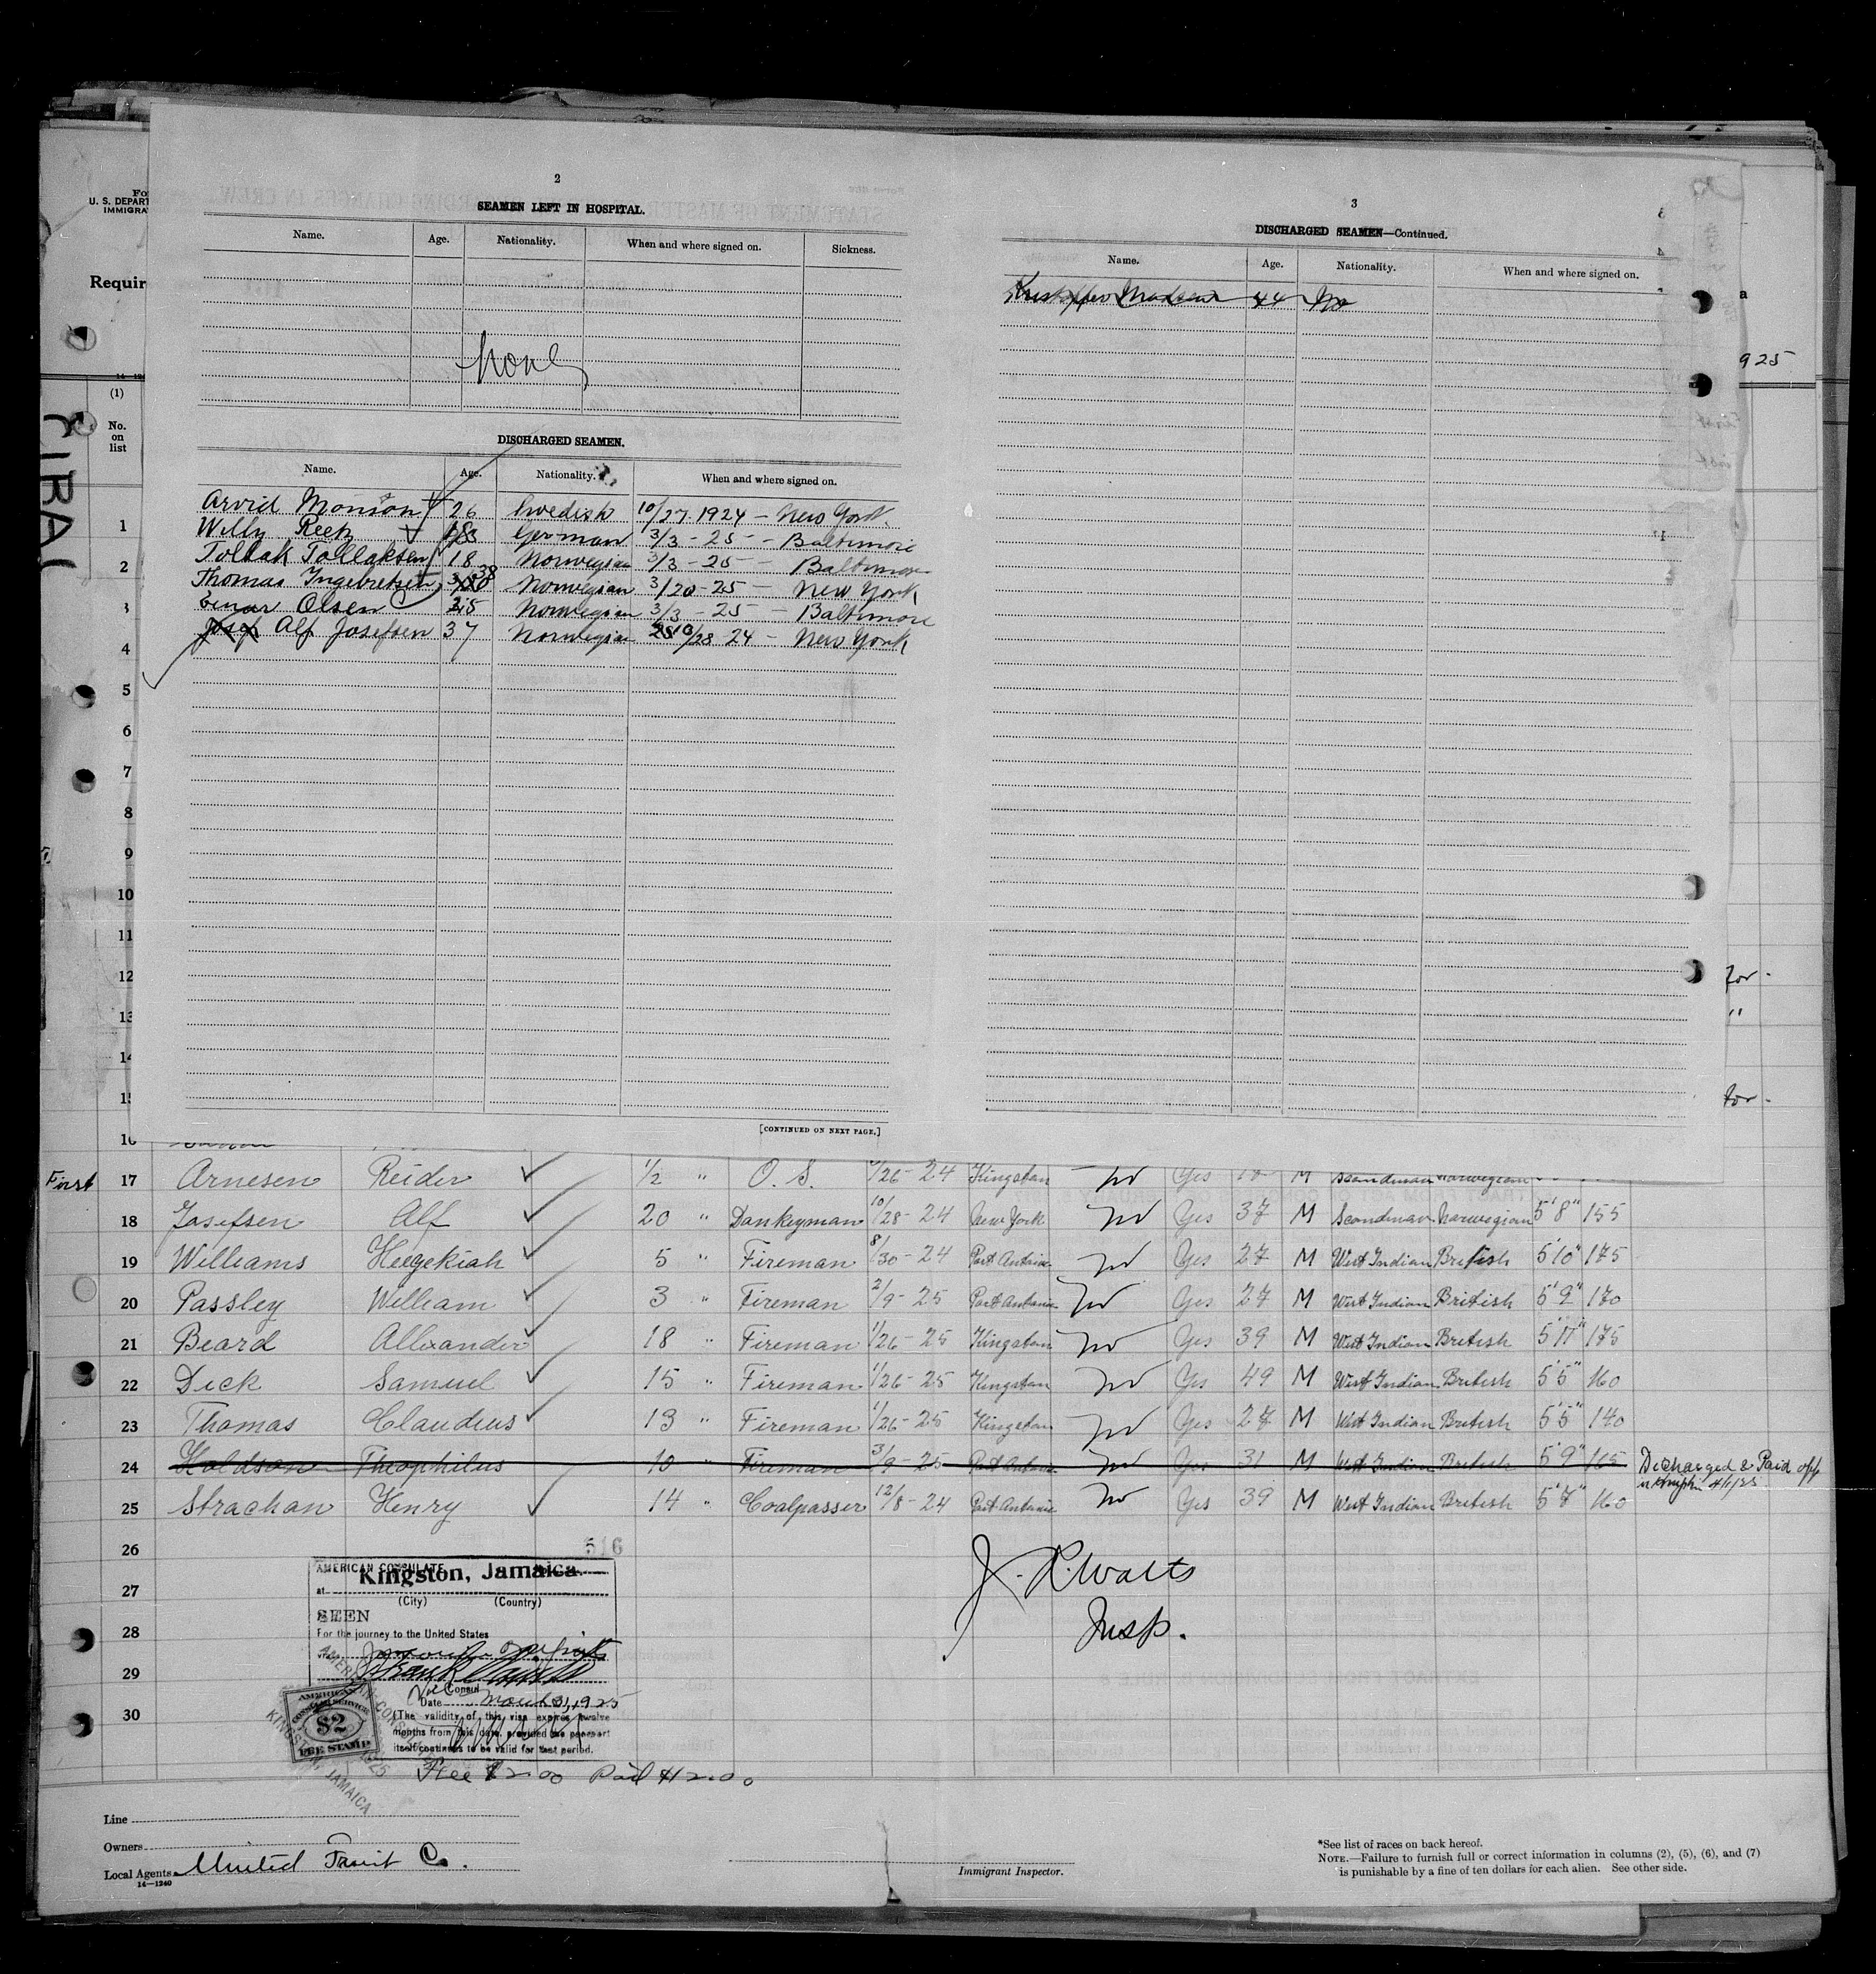 Fo
U. S. DEPART
IMMIGRA
Requir
(1)
No.
on
list
925
2
SEAMEN LEFT IN HOSPITAL.
Name. Age. Nationality. When and where signed on. Sickness.
None
DISCHARGED SEAMEN.
Name. Age. Nationality. When and where signed on.
Arvid Monson 26 Swedish 10/27-1924 - New York.
Willy Reetz German 3/3 - 25 - Baltimore
Tollak Tollaksen 18 Norwegian 3/3 - 25 - Baltimore
Thomas Ingebretsen 38 Norwegian 3/20-25 - New York
Einar Olsen 25 Norwegian 3/3 - 25 - Baltimore
Josef Alf Josefsen 37 Norwegian 10/28 24 - New York
[CONTINUED ON NEXT PAGE.]
3
DISCHARGED SEAMEN—Continued.
Name. Age. Nationality. When and where signed on.
Kristoffer Madsen 44 No
1
2
3
4
5
6
7
8
9
10
11
12 for.
13 "
14
15 for.
16
First 17 Arnesen Reider 1/2 " O. S. /26- 24 Kingston no Yes M Scandinav Norwegian
18 Josefsen Alf 20 " Donkeyman 10/28- 24 New York no Yes 37 M Scandinav. Norwegian 5'8" 155
19 Williams Heegekiah 5 " Fireman 8/30- 24 Port Antonio no Yes 27 M West Indian British 5'10" 175
20 Passley William 3 " Fireman 2/9- 25 Port Antonio no Yes 27 M West Indian British 5'9" 170
21 Beard Allexander 18 " Fireman 1/26- 25 Kingston no Yes 39 M West Indian British 5'11" 175
22 Dick Samuel 15 " Fireman 1/26- 25 Kingston no Yes 49 M West Indian British 5'5" 160
23 Thomas Claudius 13 " Fireman 1/26- 25 Kingston no Yes 27 M West Indian British 5'5" 140
24 Holdson Theophilus 10 " Fireman 3/9- 25 Port Antonio no Yes 31 M West Indian British 5'9" 165 Discharged & Paid off
in Kingston 4/1/25
25 Strachan Henry 14 " Coalpasser 12/8- 24 Port Antonio no Yes 39 M West Indian British 5'7" 160
26
27
28
29
30
516
AMERICAN CONSULATE
at Kingston, Jamaica
(City) (Country)
SEEN
For the journey to the United States
Vice Consul
Date March 31, 1925
(The validity of this visa expires twelve
months from this date, provided the passport
itself continues to be valid for that period.
AMERICAN
CONSULAR SERVICE
$2
FEE STAMP
AMERICAN CONSULATE
KINGSTON, JAMAICA
Fee $2.00 Paid $2.00
J. R. Walts
Insp.
Line
Owners
Local Agents United Fruit Co.
14—1240
Immigrant Inspector.
*See list of races on back hereof.
NOTE.—Failure to furnish full or correct information in columns (2), (5), (6), and (7)
is punishable by a fine of ten dollars for each alien. See other side.